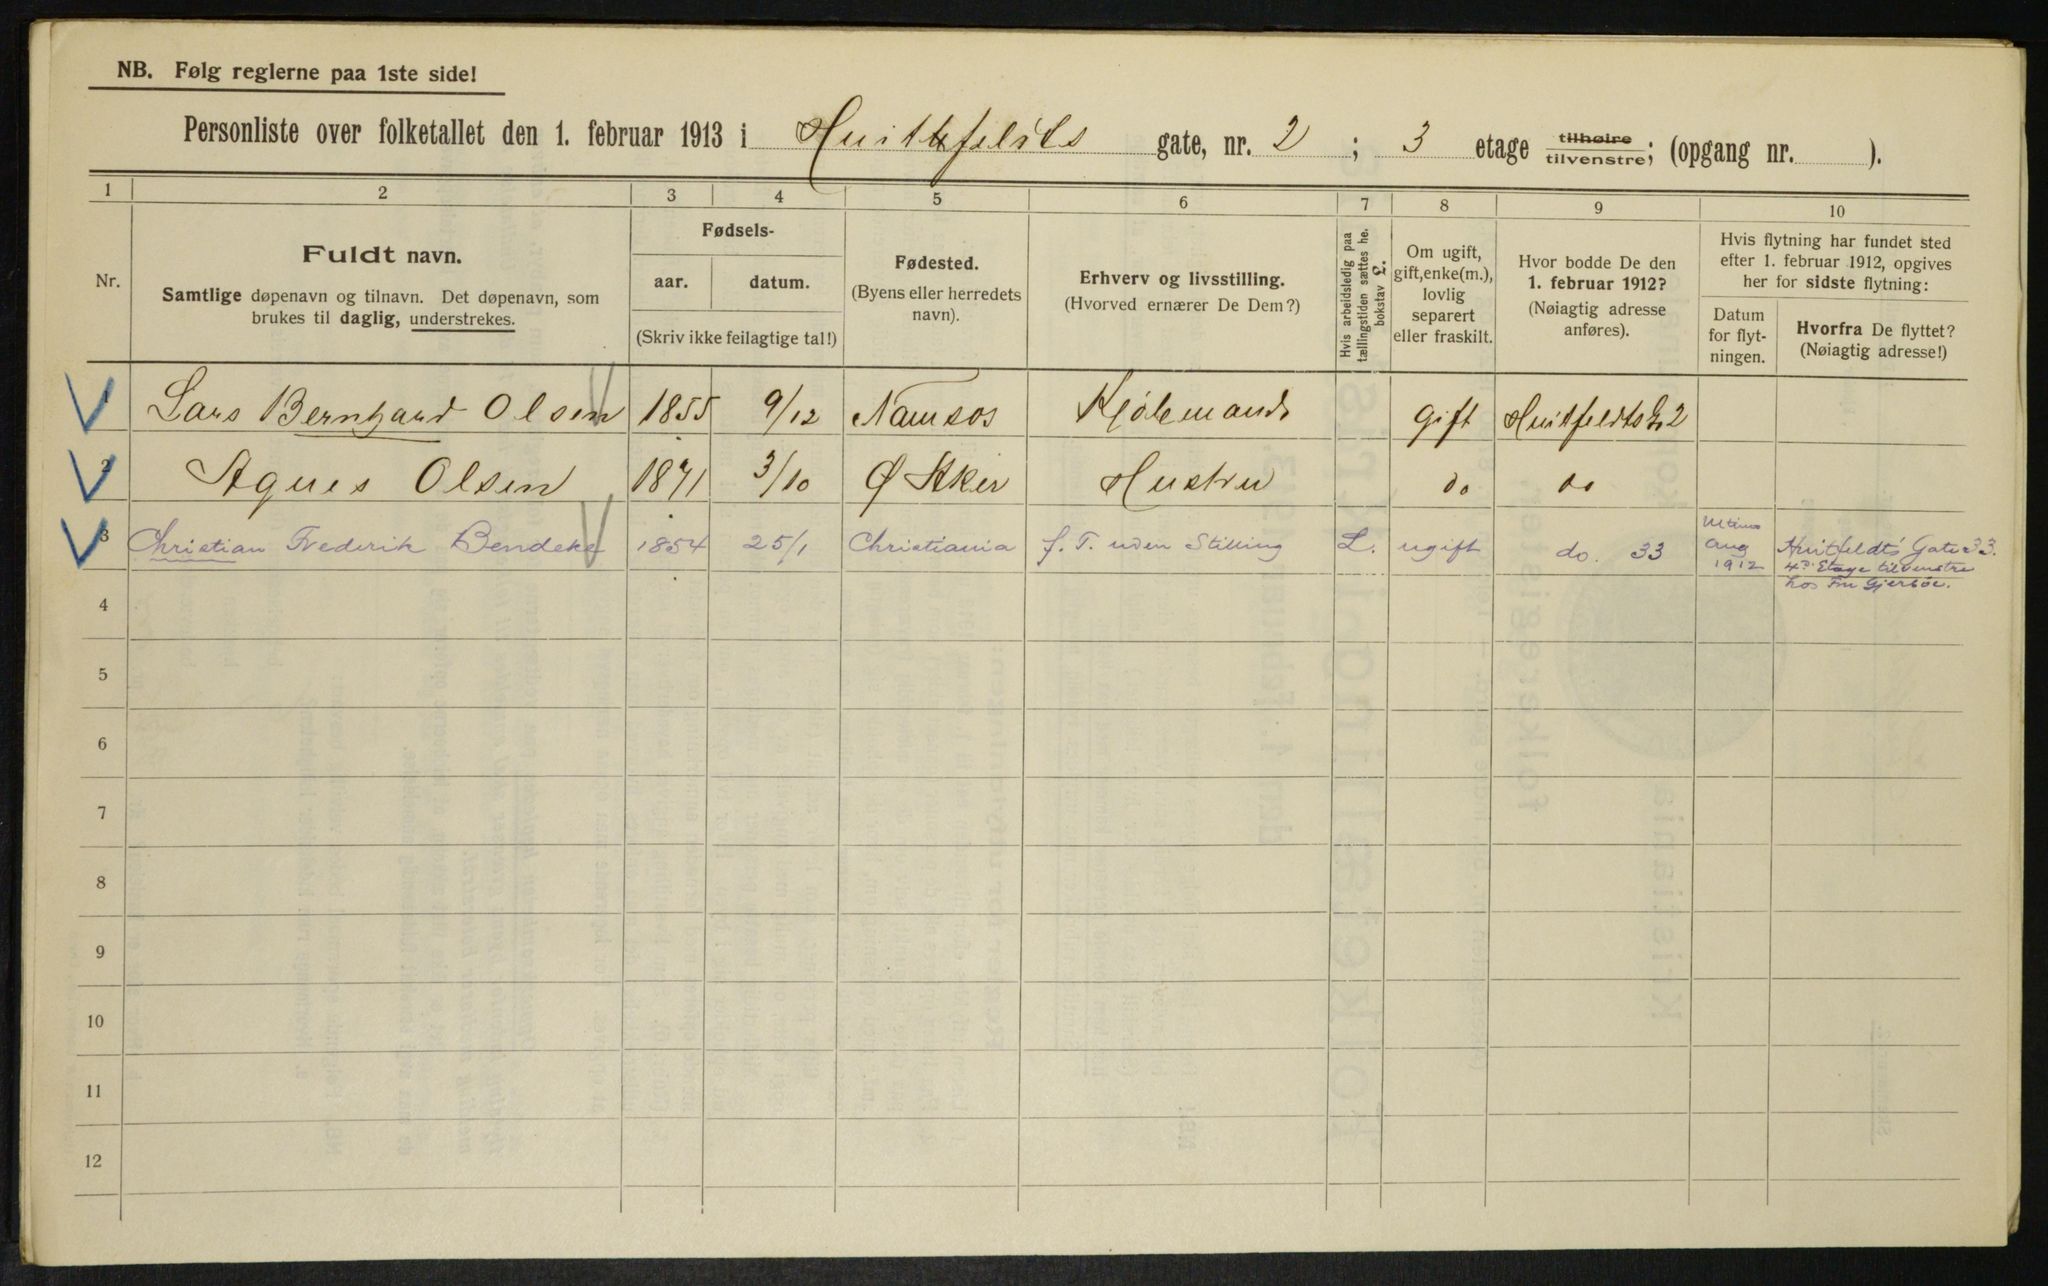 NB. Følg reglerne paa 1ste side!
Personliste over folketallet den 1. februar 1913 i Huitfeldts gate, nr. 2 ; 3 etage tilhøire tilvenstre; (opgang nr. ).
1 2 3 4 5 6 7 8 9 10
Nr.
Fuldt navn.
Samtlige døpenavn og tilnavn. Det døpenavn, som
brukes til daglig, understrekes.
Fødsels-
aar. datum.
(Skriv ikke feilagtige tal!)
Fødested.
(Byens eller herredets
navn).
Erhverv og livsstilling.
(Hvorved ernærer De Dem?)
Hvis arbeidsledig paa
tællingstiden sættes her
bokstav L.
Om ugift,
gift, enke(m.),
lovlig
separert
eller fraskilt.
Hvor bodde De den
1. februar 1912?
(Nøiagtig adresse
anføres).
Hvis flytning har fundet sted
efter 1. februar 1912, opgives
her for sidste flytning:
Datum
for flyt-
ningen.
Hvorfra De flyttet?
(Nøiagtig adresse!)
1 Lars Bernhard Olsen 1855 9/12 Namsos Kjøbmand gift Huitfeldts 2
2 Agnes Olsen 1871 3/10 Ø Aker Hustru do do
3 Christian Frederik Bendeke 1854 25/1 Christiania f. T. uden Stilling L. ugift do. 33 Ultimo Aug 1912 Huitfeldts Gate 33.
4d. Etage tilvenstre
hos Fru Gjersøe.
4
5
6
7
8
9
10
11
12